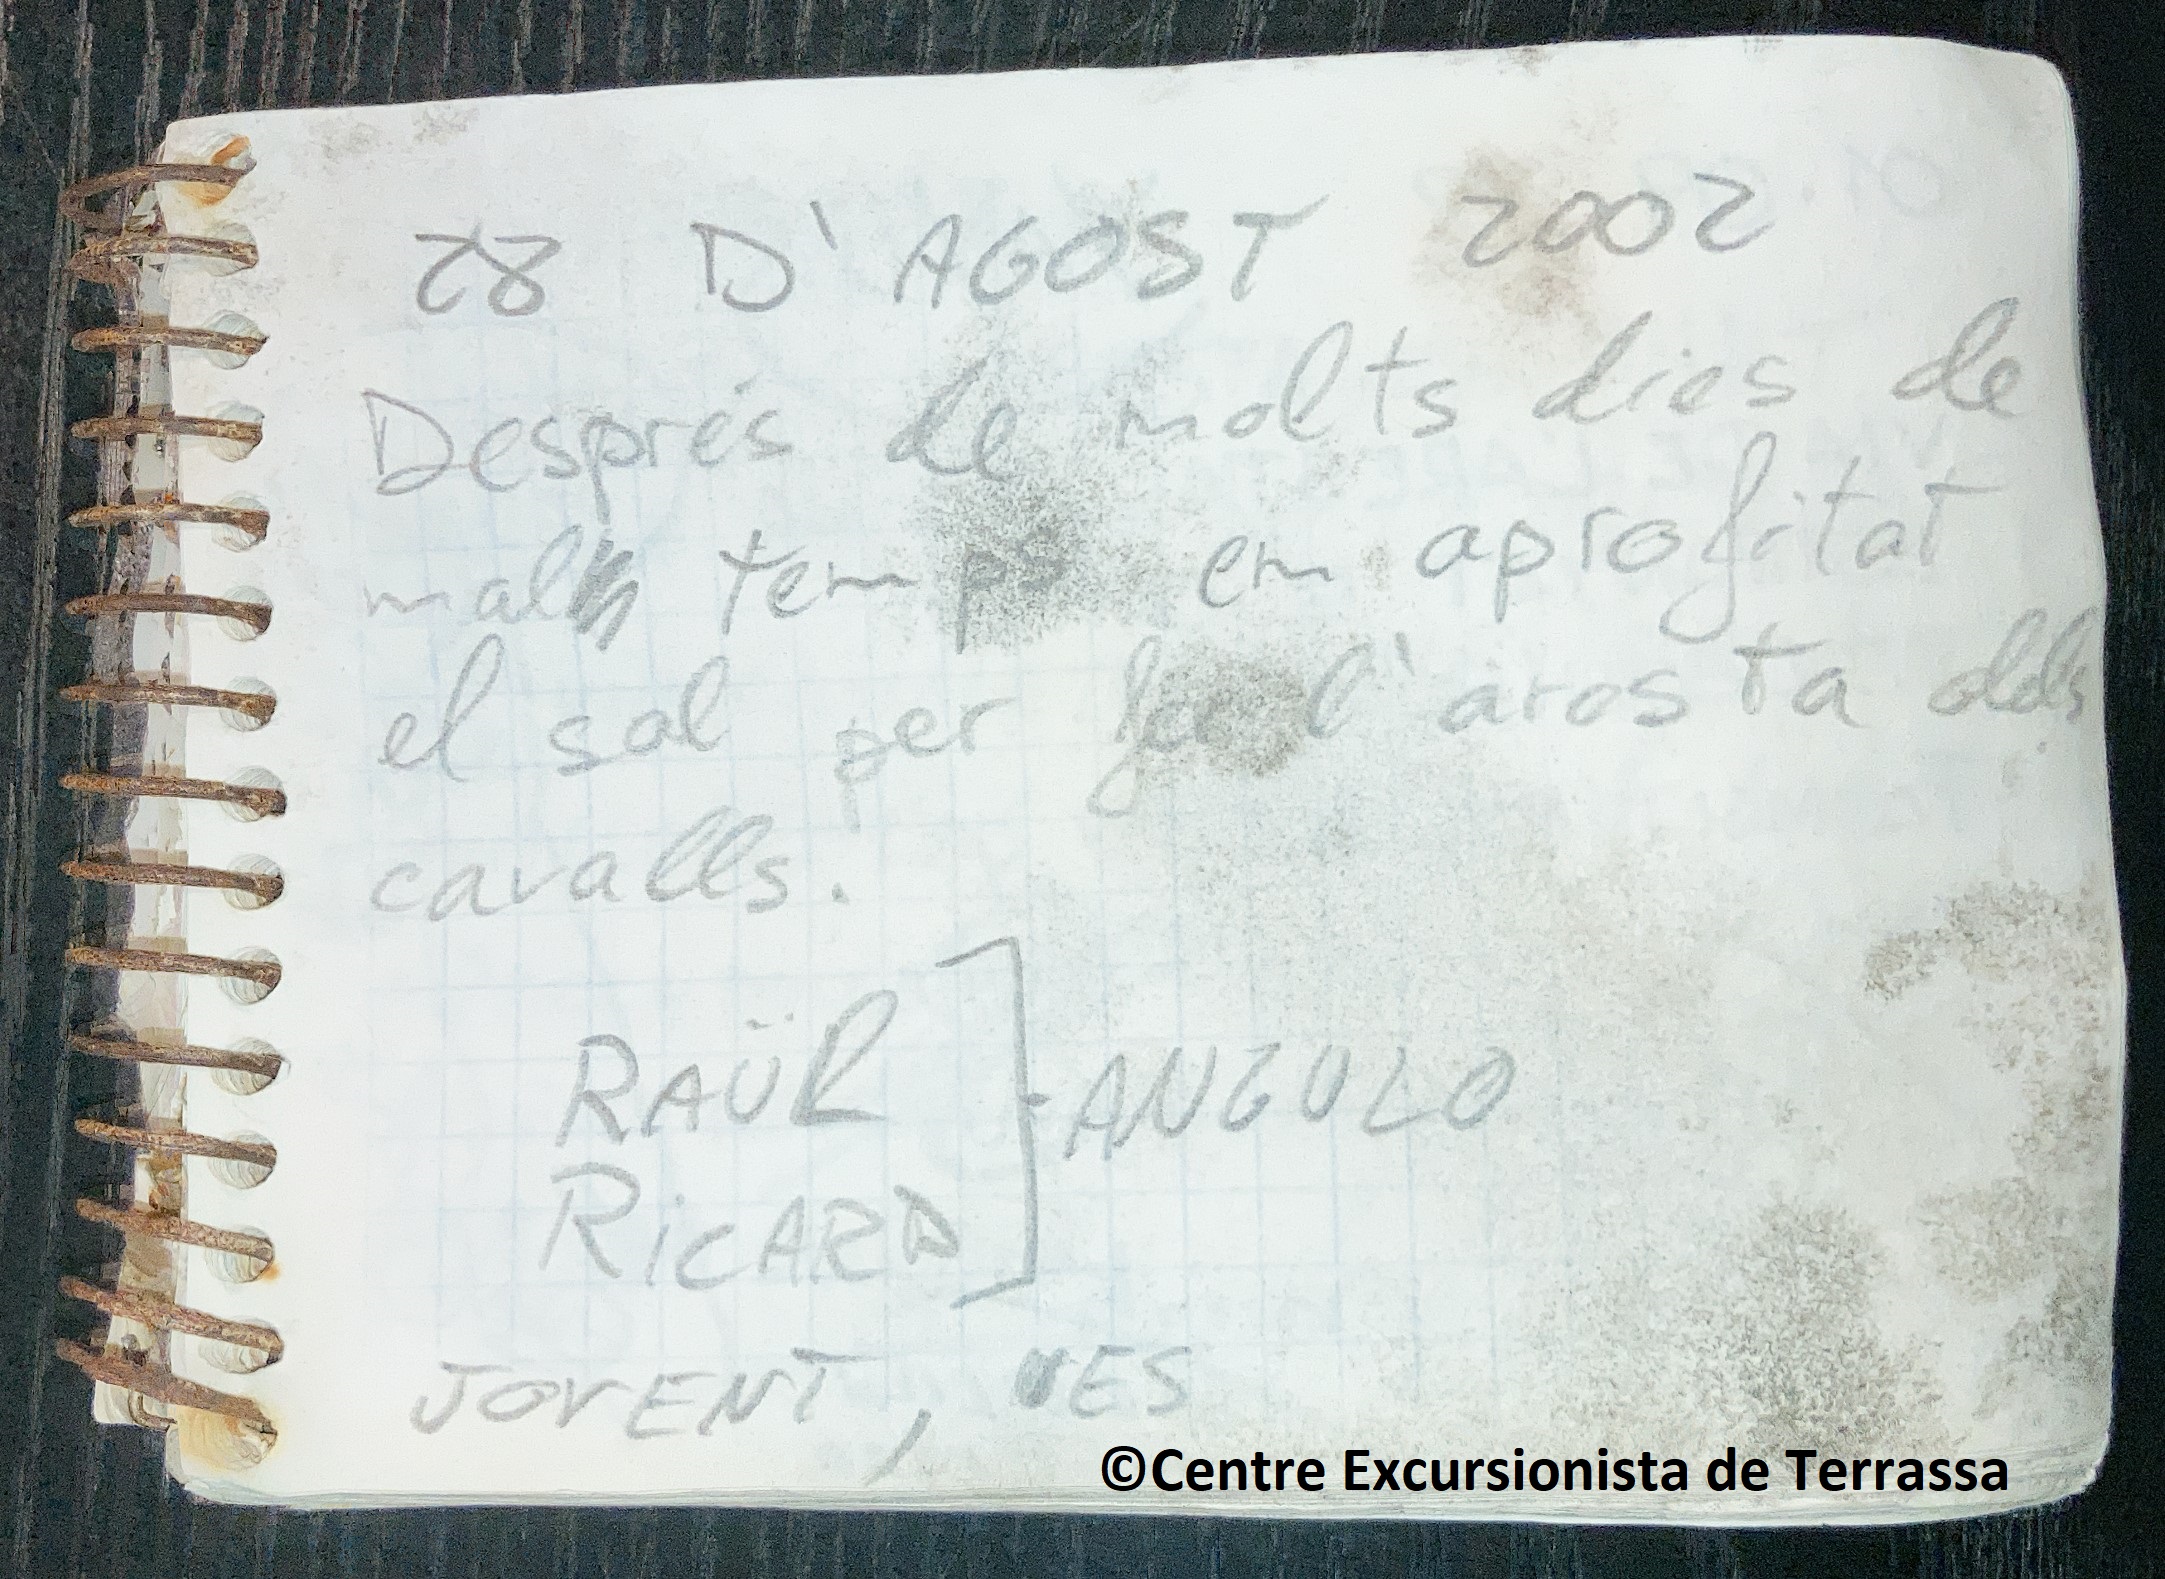 28 D'AGOST 2002
Després de molts dies de
mal temps em aprofitat
el sol per fer l'arosta dels
cavalls.
RAÜL
RICARD
] - ANGULO
JOVENT, UES
©Centre Excursionista de Terrassa